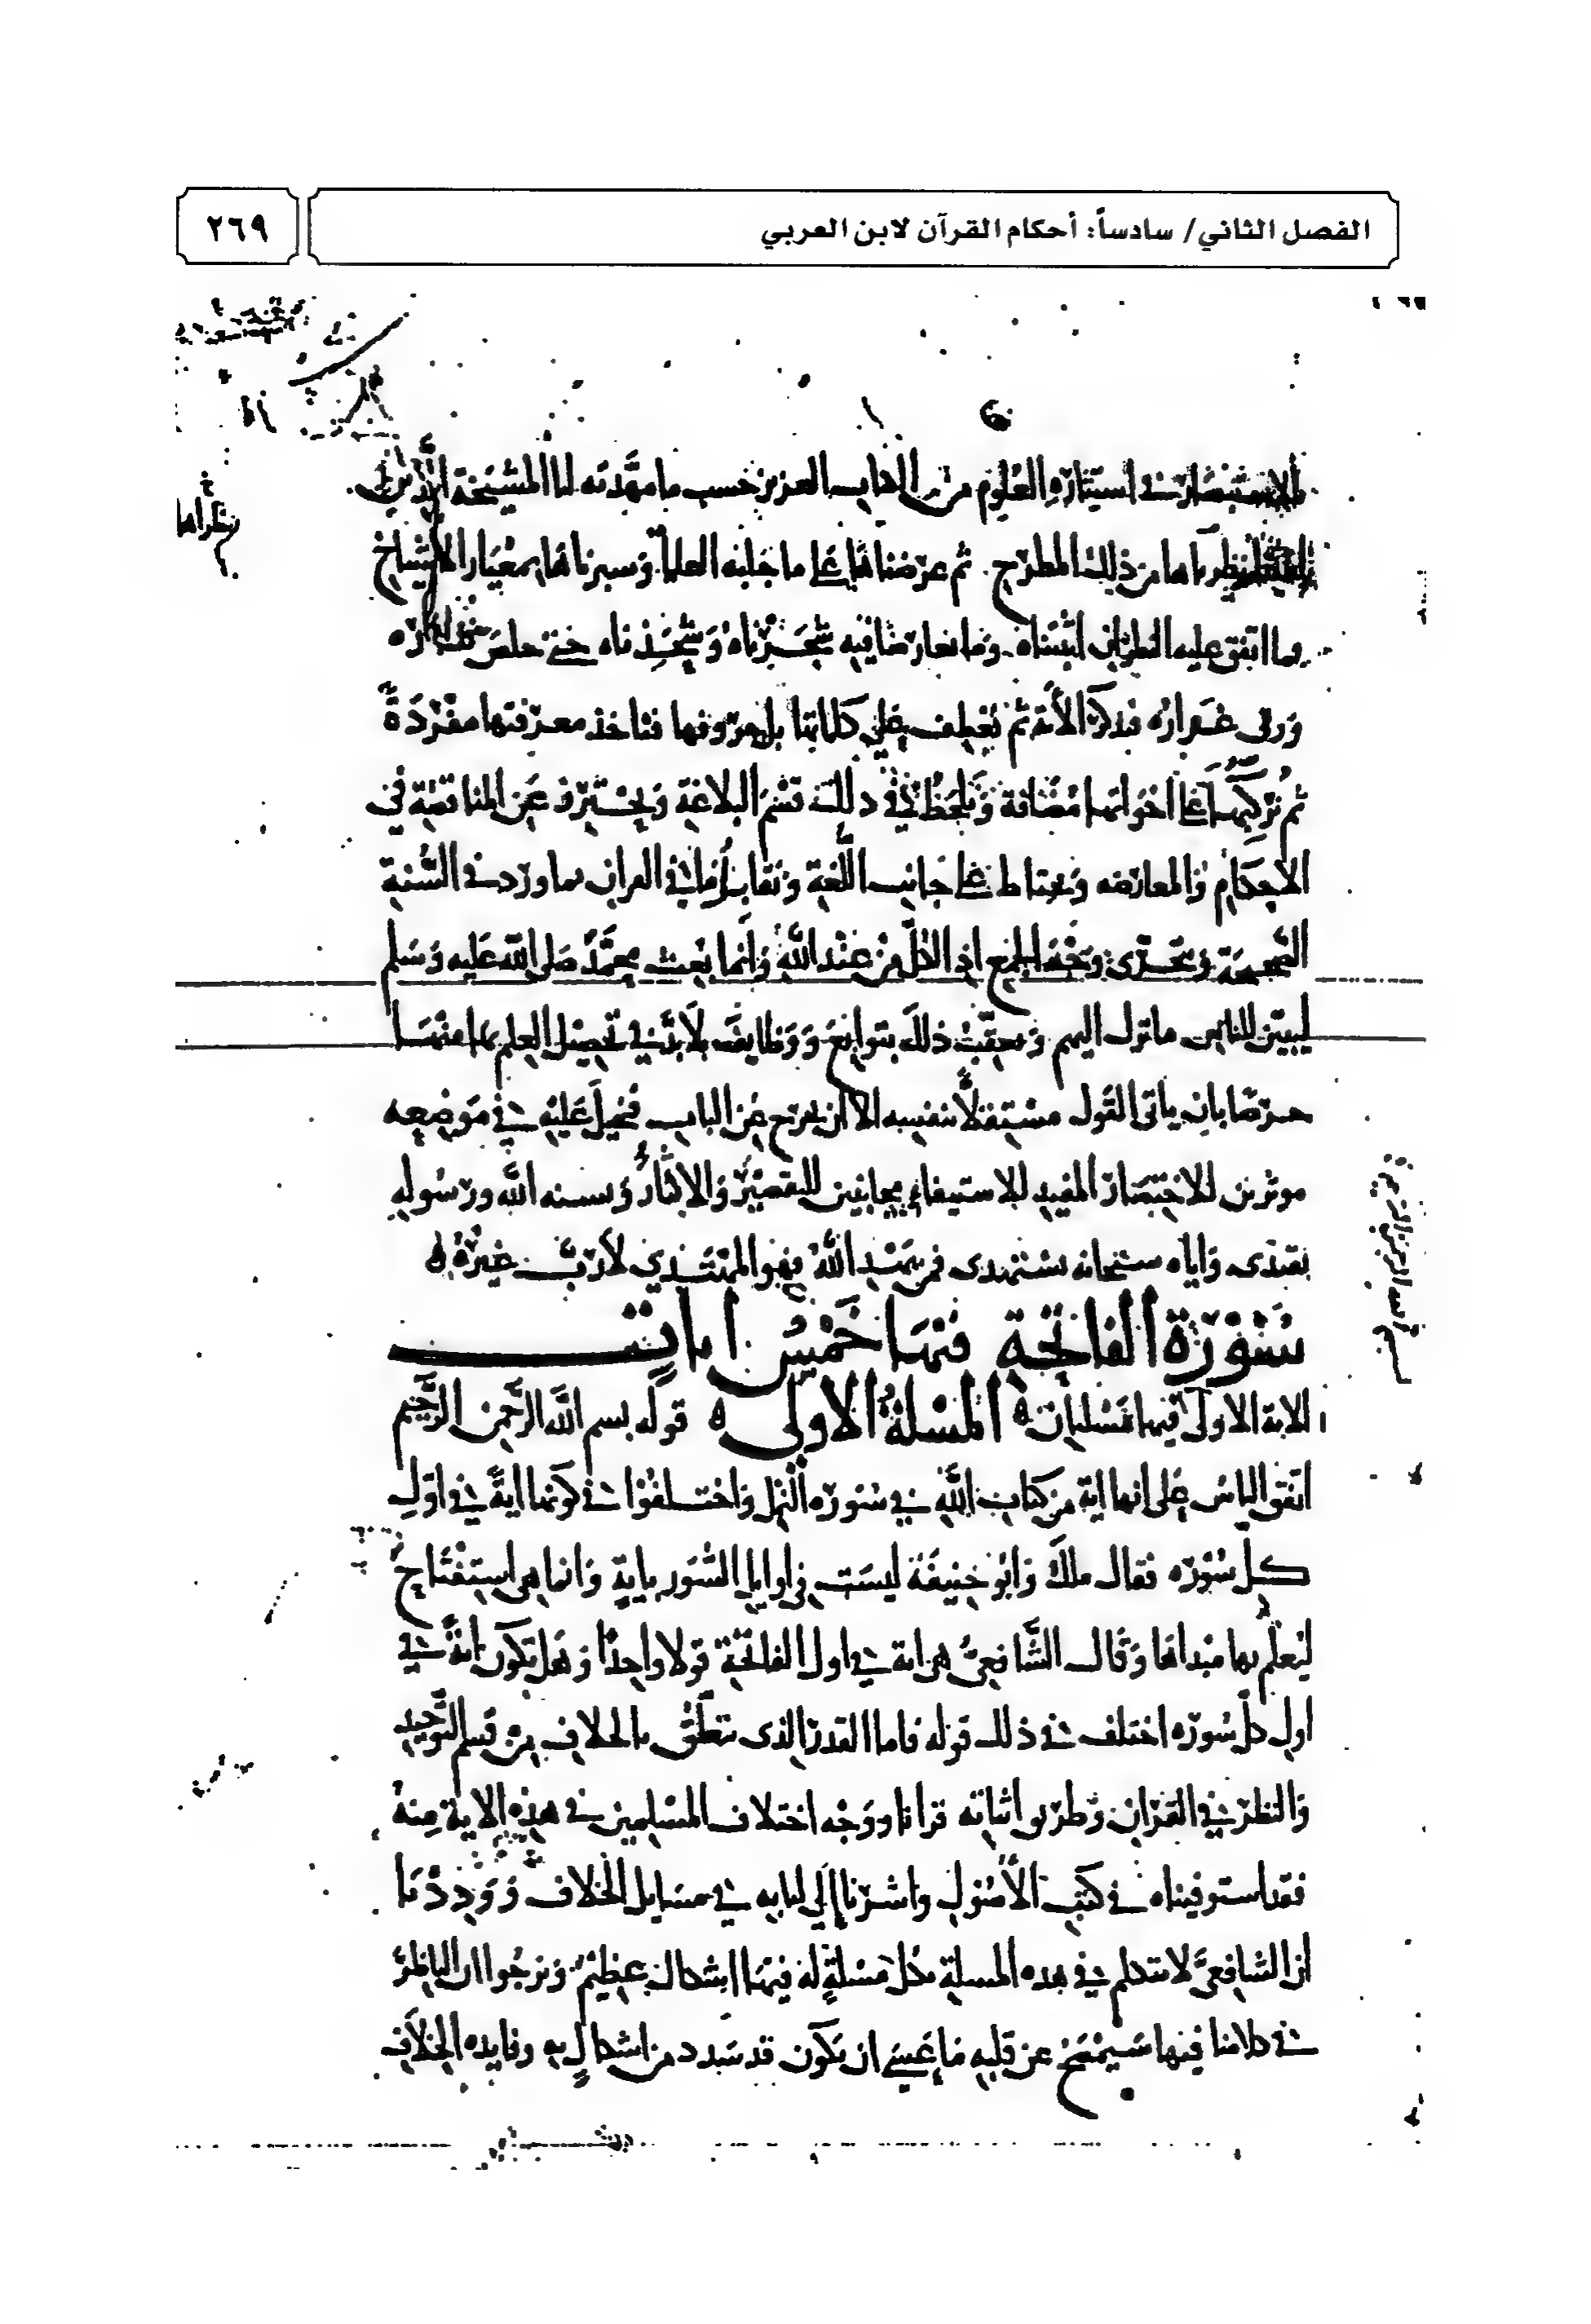 الفصل الثاني/ سادساً: أحكام القرآن لابن العربي
٢٦٩
في استثارة العلوم من الكتاب العزيز حسب ما مهدته لنا المشيخة الذين
من ذلك المطرح ثم عرضناها على ما جلبه العلما وسبرناها بمعيار الأشياخ
فما اتفق عليه النظران اثبتناه وما تعارضا فيه شجرناه وشحذناه حتى خلص نضاره
وورق عراره فنذكر الآية ثم نعطف على كلماتها بل حروفها فناخذ معرفتها مفردة
ثم نركبها على اخواتها مضافة ونلحظ في ذلك قسم البلاغة ونحترز عن المناقضة في
الاحكام والمعارضه ونحتاط على جانب اللغة ونقابلها في القران بما ورد في السنة
الصحيحة ونتحرى وجه الجمع اذ الكل من عند الله وانما بعث محمد صلى الله عليه وسلم
ليبين للناس ما نزل اليهم ونعقب ذلك بتوابع ووظايف لا بد في تحصيل العلم بها منها
حرصا بان ياتى القول مستقلا بنفسه الا ان يخرج عن الباب فنحيل عليه في موضعه
موثرين للاختصار المفيد للاستيفاء مجانبين للتقصير والاكثار وبسنه الله ورسوله
نقتدى واياه سبحانه نستهدى فمن يهد الله فهو المهتدي لا رب غيره
سورة الفاتحة فيها خمس ايات
الاية الاولى فيها مسلتان المسلة الاولى قوله بسم الله الرحمن الرحيم
اتفق الناس على انها اية من كتاب الله في سوره النمل واختلفوا في كونها اية في اول
كل سوره فقال ملك وابو حنيفة ليست في اوايل السور باية وانما هي استفتاح
ليعلم بها مبداها وقال الشافعي هي اية في اول الفاتحة قولا واحدا وهل تكون اية في
اول كل سوره اختلف في ذلك قوله فاما القدر الذى يتعلق بالخلاف من قسم التوحيد
والنظر في القران وطريق اثباته قرانا ووجه اختلاف المسلمين في هذه الاية منه
فقد استوفيناه في كتب الأصول واشرنا إلى لبابه في مسايل الخلاف ووددنا
ان الشافعي لا يتكلم في هذه المسلة فكل مسلة له فيها اشكال عظيم ونرجوا ان الناظر
في كلامنا فيها سيمسح عن قلبه ما عسى ان يكون قد سدد من اشكال به وفايده الخلاف